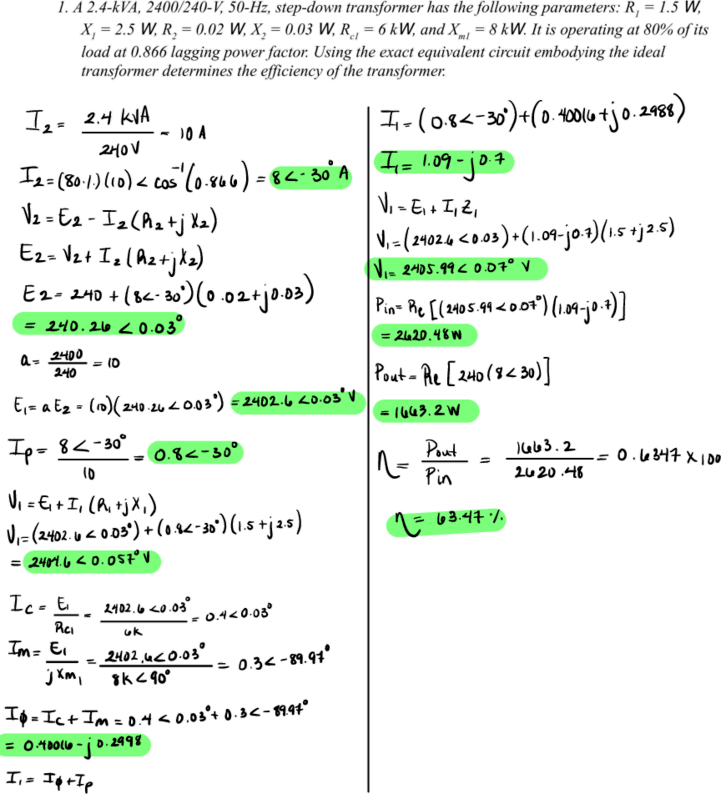 1. A 2.4-kVA, 2400/240-V, 50-Hz, step-down transformer has the following parameters: R₁ = 1.5 W,
X₁ = 2.5 W, R₂ = 0.02 W, X₂ = 0.03 W, R_c1 = 6 kW, and X_m1 = 8 kW. It is operating at 80% of its
load at 0.866 lagging power factor. Using the exact equivalent circuit embodying the ideal
transformer determines the efficiency of the transformer.
I₂ = 2.4 kVA / 240V = 10 A
I₂ = (80%)(10) < cos⁻¹(0.866) = 8<-30° A
V₂ = E₂ - I₂(R₂+jX₂)
E₂ = V₂ + I₂(R₂+jX₂)
E₂ = 240 + (8<-30°)(0.02+j0.03)
= 240.26 < 0.03°
a = 2400 / 240 = 10
E₁ = aE₂ = (10)(240.26 < 0.03°) = 2402.6 <0.03° V
Ip = 8<-30° / 10 = 0.8<-30°
V₁ = E₁ + I₁(R₁+jX₁)
V₁ = (2402.6 < 0.03°) + (0.8<-30°)(1.5+j2.5)
= 2404.6 < 0.057° V
Ic = E₁ / Rc₁ = 2402.6 <0.03° / 6k = 0.4<0.03°
Im = E₁ / jXm₁ = 2402.6<0.03° / 8k<90° = 0.3<-89.97°
Iϕ = Ic + Im = 0.4 < 0.03° + 0.3<-89.97°
= 0.40016 - j0.2998
I₁ = Iϕ + Ip
I₁ = (0.8<-30°)+(0.40016+j0.2988)
I₁ = 1.09 - j0.7
V₁ = E₁ + I₁Z₁
V₁ = (2402.6 < 0.03)+(1.09-j0.7)(1.5+j2.5)
V₁ = 2405.99< 0.07° V
Pin = Re [(2405.99 <0.07°)(1.09-j0.7)]
= 2620.48W
Pout = Re [240(8<30)]
= 1663.2W
η = Pout / Pin = 1663.2 / 2620.48 = 0.6347 x 100
η = 63.47%